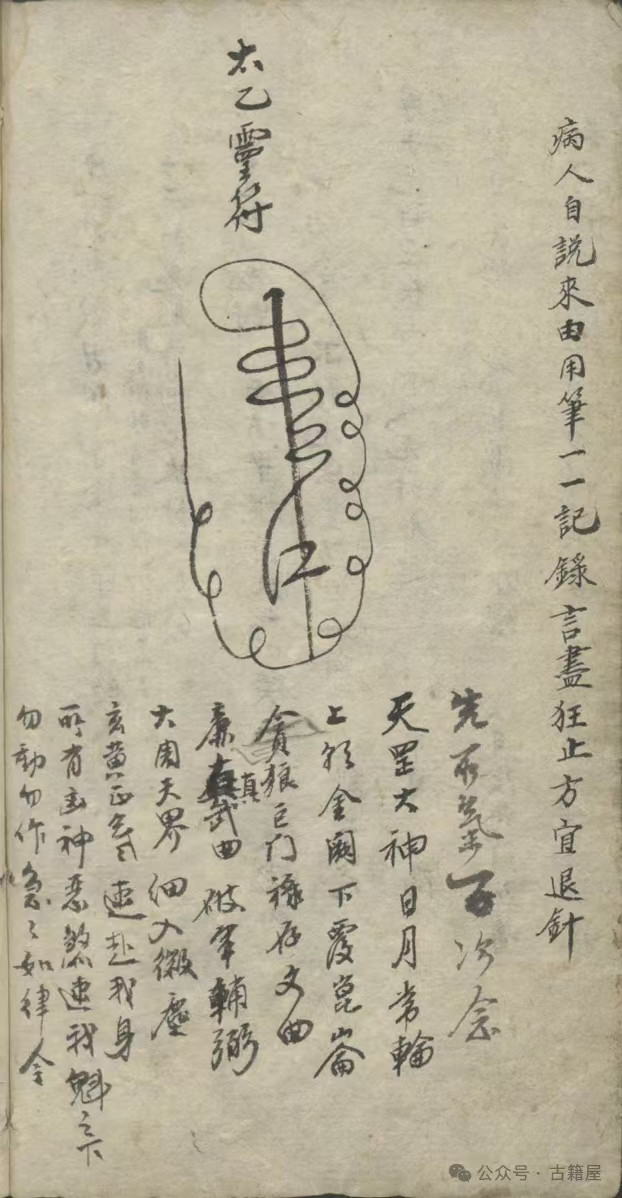 病人自説來由用筆一一記錄言盡狂止方宜退針
太乙靈符
先取炁一百次念
天罡大神日月常輪
上朝金闕下覆崑崙
貪狼巨门祿存文曲
廉真武曲破軍輔弼
大周天界細入微塵
玄黄正炁速赴我身
所有凶神惡煞速我魁之下
勿動勿作急〻如律令
公众号·古籍屋